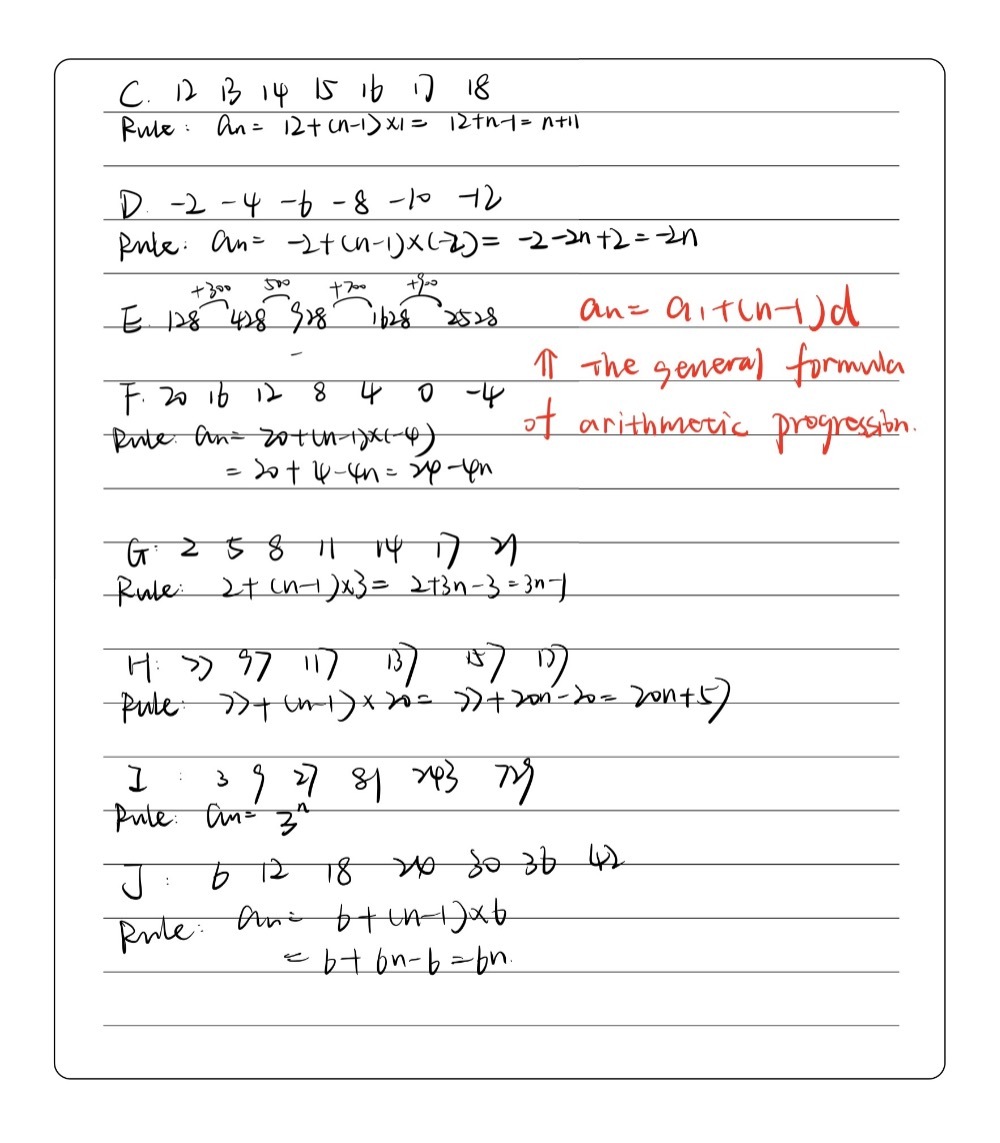 C. 12 13 14 15 16 17 18
Rule: an= 12+(n-1)×1= 12+n-1= n+11
D. -2 -4 -6 -8 -10 -12
Rule: an= -2+(n-1)×(-2)= -2-2n+2=-2n
+300 500 +700 +900
E. 128 428 928 1628 2528
an= a1+(n-1)d
⇑ The general formula
of arithmetic progression.
F. 20 16 12 8 4 0 -4
Rule: an= 20+(n-1)×(-4)
= 20+4-4n= 24-4n
G: 2 5 8 11 14 17
Rule: 2+(n-1)×3= 2+3n-3=3n-1
H: 77 97 117 137 157 177
Rule: 77+(n-1)×20= 77+20n-20= 20n+57
I : 3 9 27 81 243 729
Rule: an= 3ⁿ
J : 6 12 18 24 30 36 42
Rule: an= 6+(n-1)×6
= 6+6n-6=6n.